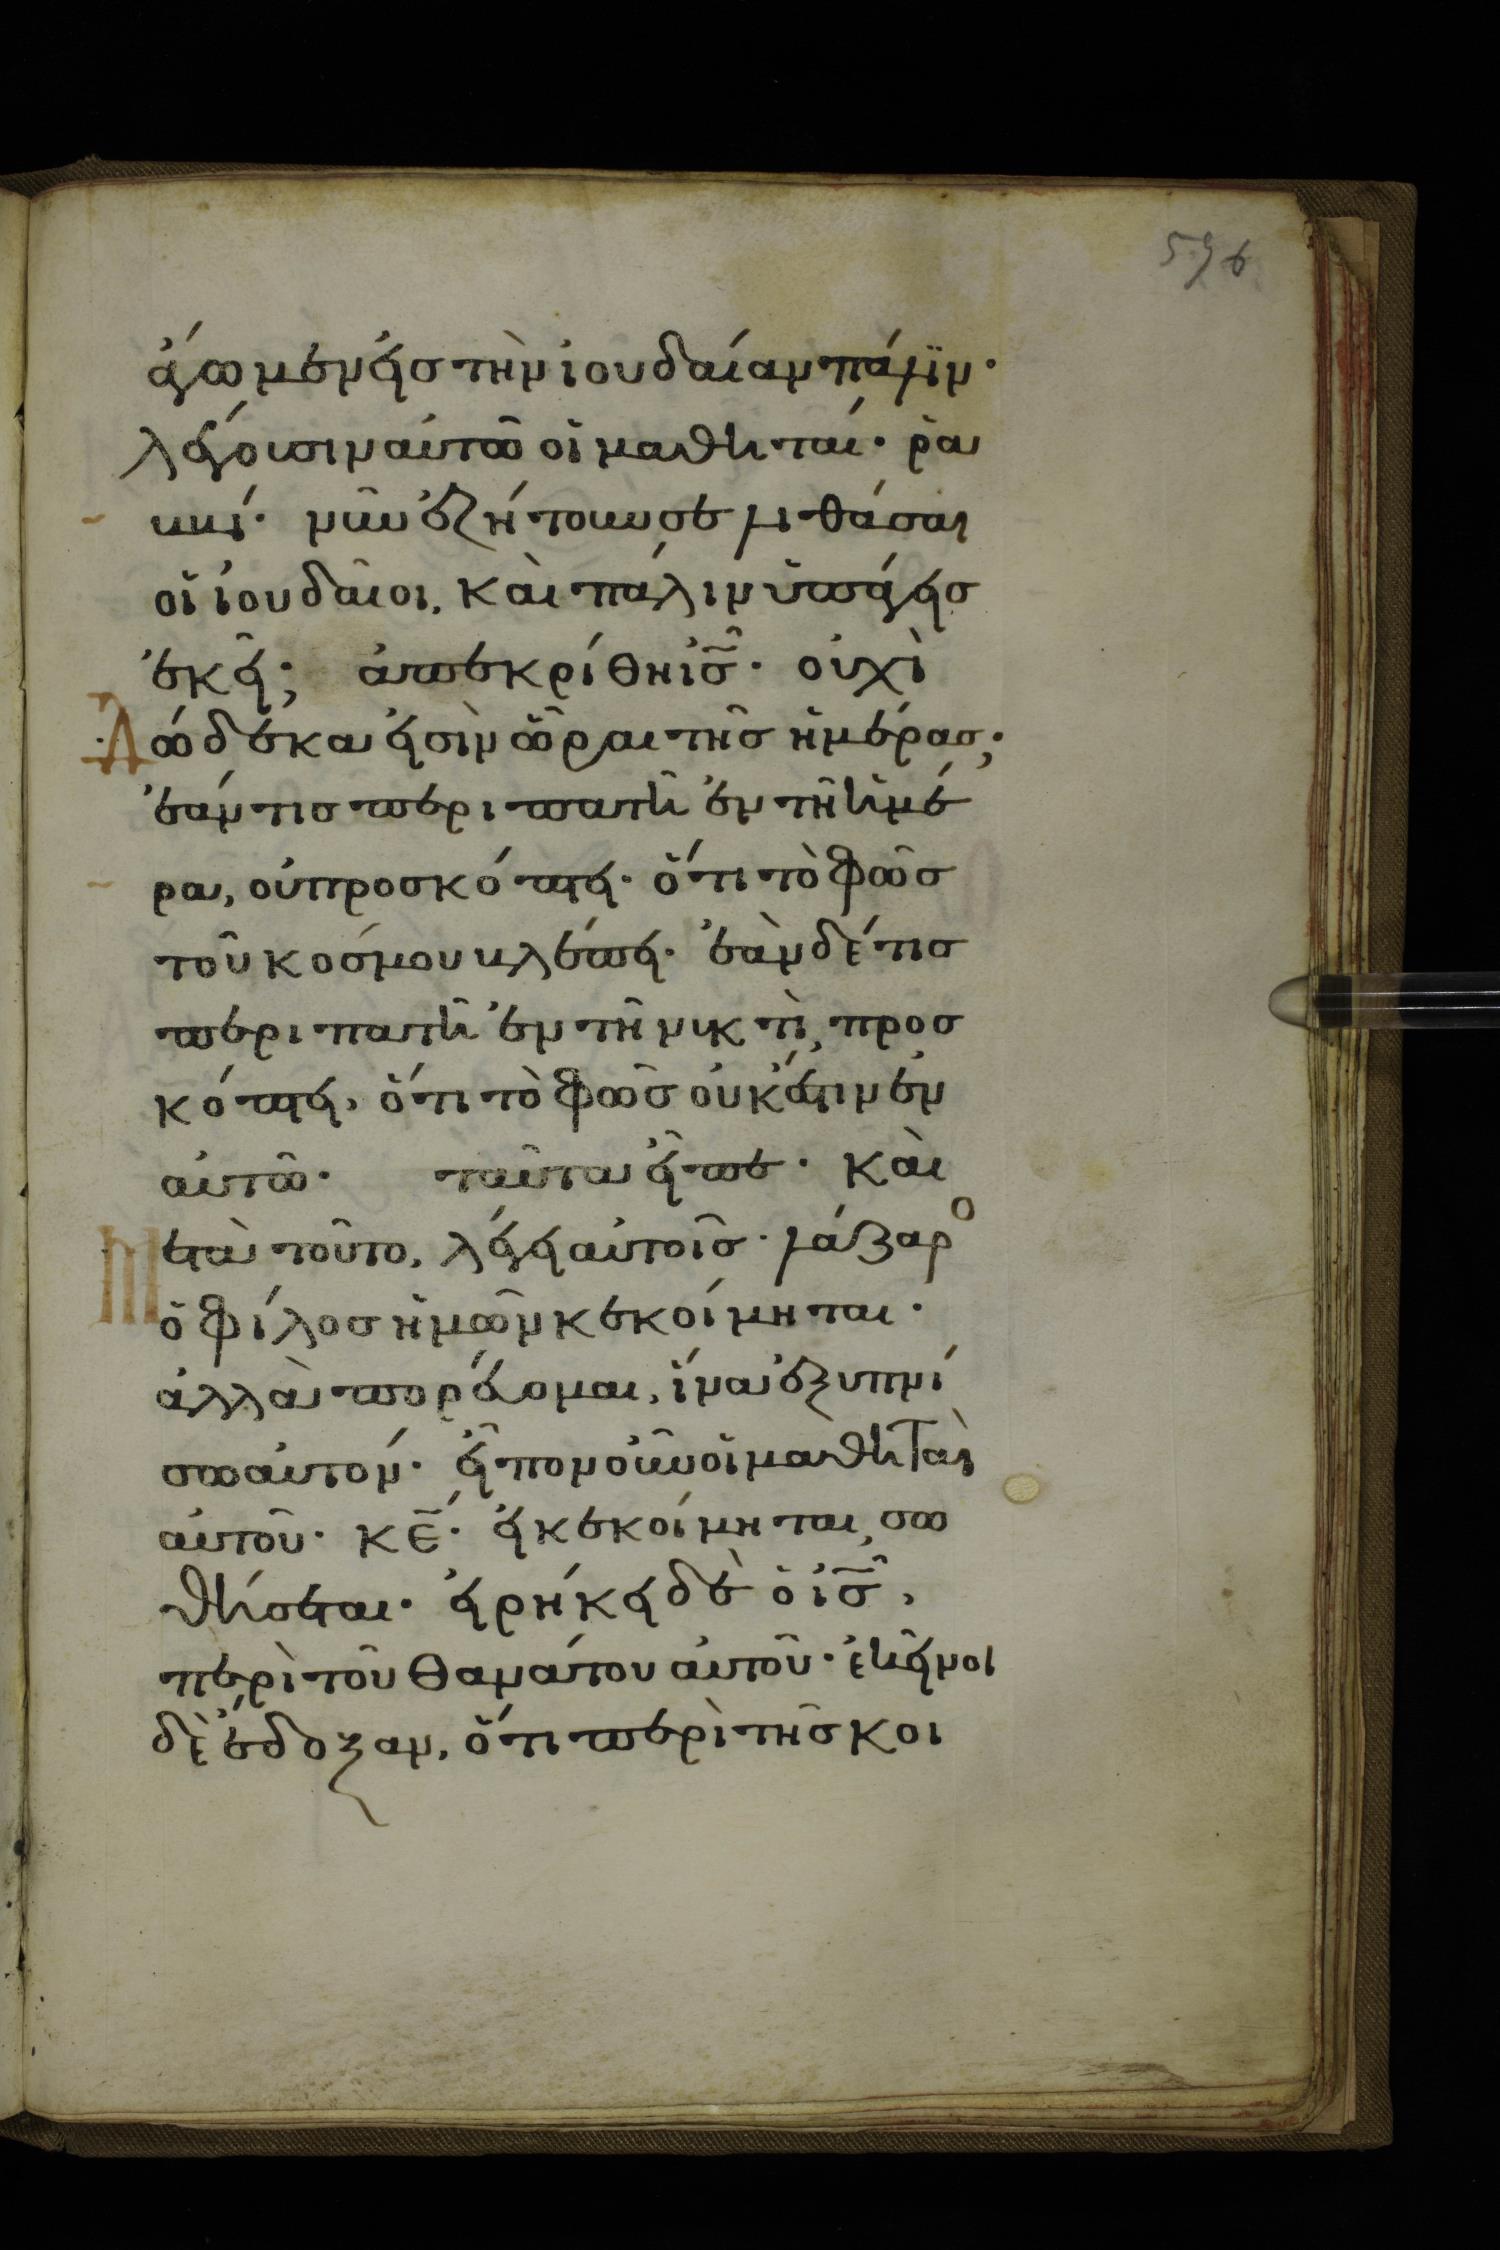 576
ἄγωμεν εἰς τὴν ἰουδαίαν πάλϊν·
λέγουσιν αὐτῶ οἱ μαθηταί· ρὰ
ββί· νῦν ἐζήτουν σε λιθάσαι
οἱ ἰουδαῖοι, καὶ πάλιν ὑπάγεις
ἐκεῖ; ἀπεκρίθη ἰς̅· οὐχὶ
δώδεκα εἰσὶν ὧραι τῆς ἡμέρας;
ἐάν τις περιπατῆ ἐν τῆ ἡμέ
ρα, οὐ προσκόπτει· ὅτι τὸ φῶς
τοῦ κοσμου βλέπει· ἐὰν δέ τις
περιπατῆ ἐν τῆ νυκτὶ, προσ
κόπτει, ὅτι τὸ φῶς οὐκ ἔστιν ἐν
αὐτῶ· ταῦτα εἶπε· καὶ
μετὰ τοῦτο, λέγει αὐτοῖς· λάζαρο
ὁ φίλος ἡμῶν κεκοίμηται·
ἀλλὰ πορεύομαι, ἵνα ἐξυπνί
σω αὐτον· εἶπον οὖν οἱ μαθηταὶ
αὐτοῦ· κε̅· εἰ κεκοίμηται, σω
θήσεται· εἰρήκει δὲ ὁ ἰς̅,
περὶ τοῦ θανάτου αὐτοῦ· ἐκεῖνοι
δὲ ἔδοξαν, ὅτι περὶ τῆς κοι